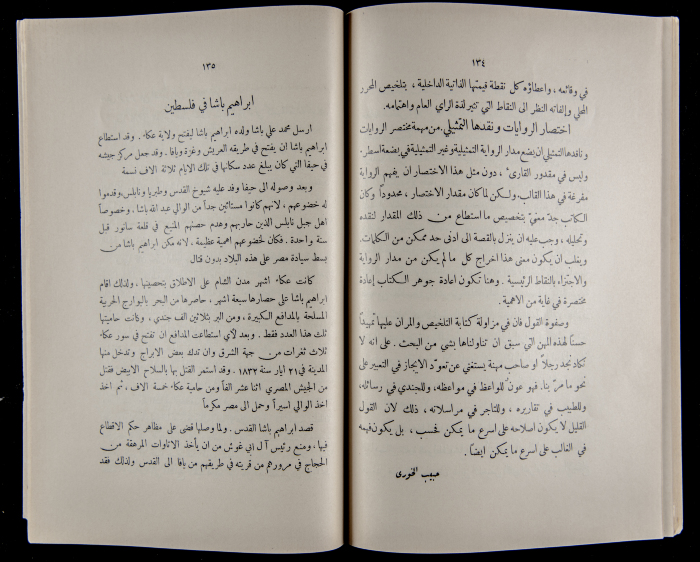 ١٣٤
في وقائعه ، واعطاؤه كل نقطة قيمتها الذاتية الداخلية ، بتلخيص المحرر
المحلي وإلفاته النظر الى النقاط التي تثير لذة الراي العام واهتمامه.
اختصار الروايات ونقدها التمثيلي. من مهمة مختصر الروايات
وناقدها التمثيلي ان يضع مدار الرواية التمثيلية وغير التمثيلية في بضعة اسطر.
وليس في مقدور القارىء ، دون مثل هذا الاختصار ان يفهم الرواية
مفرغة في هذا القالب. ولكن لما كان مقدار الاختصار ، محدوداً وكان
الكاتب جدّ معنيّ بتخصيص ما استطاع من ذلك المقدار لنقده
وتحليله ، وجب عليه ان ينزل بالقصة الى ادنى حد ممكن من الكلمات.
ويغلب ان يكون معنى هذا اخراج كل ما لم يكن من مدار الرواية
والاجتزاء بالنقاط الرئيسية . وهنا تكون اعادة جوهر الكتاب إعادة
مختصرة في غاية من الاهمية.
وصفوة القول فان في مزاولة كتابة التلخيص والمران عليها تمهيداً
حسناً لهذه المهن التي سبق ان تناولناها بشي من البحث . على انه لا
تكاد تجد رجلاً او صاحب مهنة يستغني عن تعوّد الايجاز في التعبير على
نحو ما مرّ بنا. فهو عونٌ للواعظ في مواعظه، وللجندي في رسائله،
وللطبيب في تقاريره ، وللتاجر في مراسلاته ، ذلك لان القول
القليل لا يكون اصلاحه على اسرع ما يمكن فحسب ، بل يكون فهمه
في الغالب على اسرع ما يمكن ايضاً .
حبيب الخوري
١٣٥
ابراهيم باشا في فلسطين
ارسل محمد علي باشا ولده ابراهيم باشا ليفتح ولاية عكاء . وقد استطاع
ابراهيم باشا ان يفتح في طريقه العريش وغزة ويافا . وقد جعل مركز جيشه
في حيفا التي كان يبلغ عدد سكانها في تلك الايام ثلاثة الاف نسمة
وبعد وصوله الى حيفا وفد عليه شيوخ القدس وطبريا ونابلس وقدموا
له خضوعهم ، لانهم كانوا مستائين جداً من الوالي عبد الله باشا . وخصوصاً
اهل جبل نابلس الذين حاربهم وهدم حصنهم المنيع في قلعة سانور قبل
سنة واحدة . فكان لخضوعهم اهمية عظيمة ، لانه مكن ابراهيم باشا من
بسط سيادة مصر على هذه البلاد بدون قتال
كانت عكاء اشهر مدن الشام على الاطلاق بتحصينها ، ولذلك اقام
ابراهيم باشا على حصارها سبعة اشهر ، حاصرها من البحر بالبوارج الحربية
المسلحة بالمدافع الكبيرة ، ومن البر بثلاثين الف جندي ، وكانت حاميتها
ثلث هذا العدد فقط . وبعد لأي استطاعت المدافع ان تفتح في سور عكاء
ثلاث ثغرات من جهة الشرق وان تدك بعض الابراج وتدخل منها
المدينة في ٢١ ايار سنة ١٨٣٢ . وقد استمر القتال بها بالسلاح الابيض فقتل
من الجيش المصري اثنا عشر الفاً ومن حامية عكاء خمسة الاف ، ثم اخذ
اخذ الوالي اسيراً وحمل الى مصر مكرماً
قصد ابراهيم باشا القدس . ولما وصلها قضى على مظاهر حكم الاقطاع
فيها ، ومنع رئيس آل ابي غوش من ان يأخذ الاتاوات المرهقة من
الحجاج في مرورهم من قريته في طريقهم من يافا الى القدس ولذلك فقد